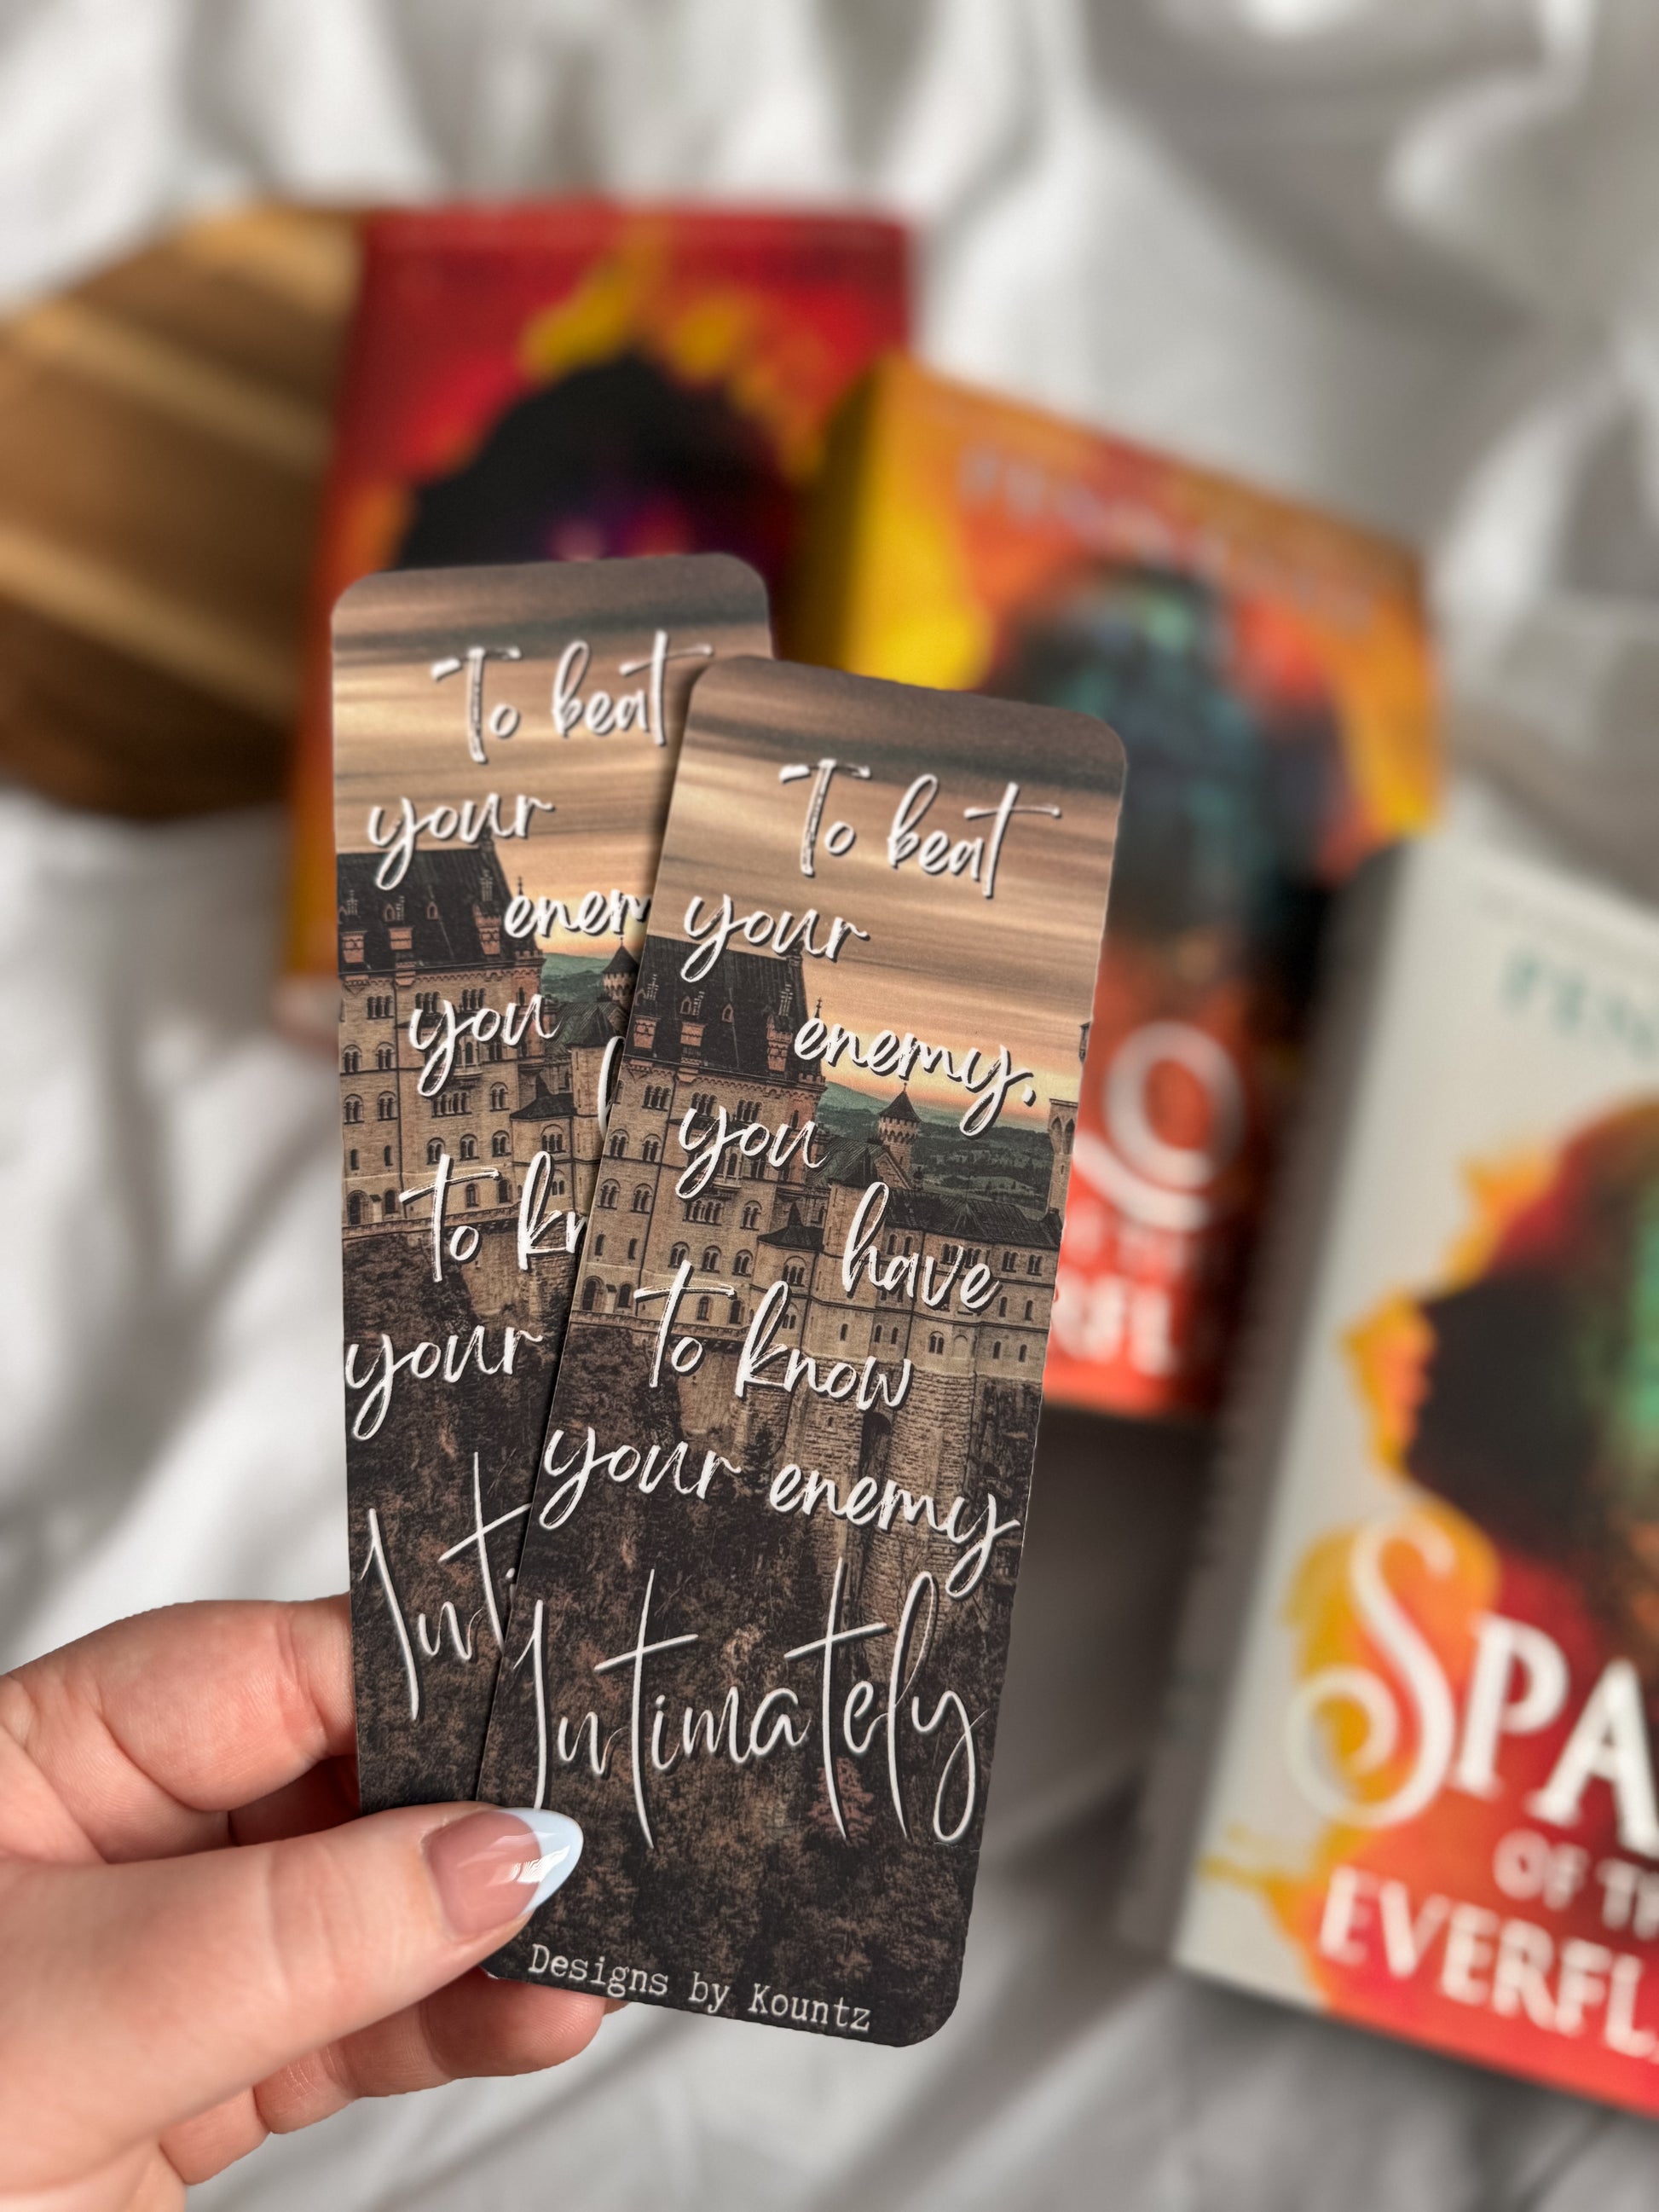 To beat
your
enem
you
to kn
your
Int
To beat
your
enemy,
you
have
to know
your enemy
Intimately
Designs by Kountz
SPA
OF TH
EVERFL